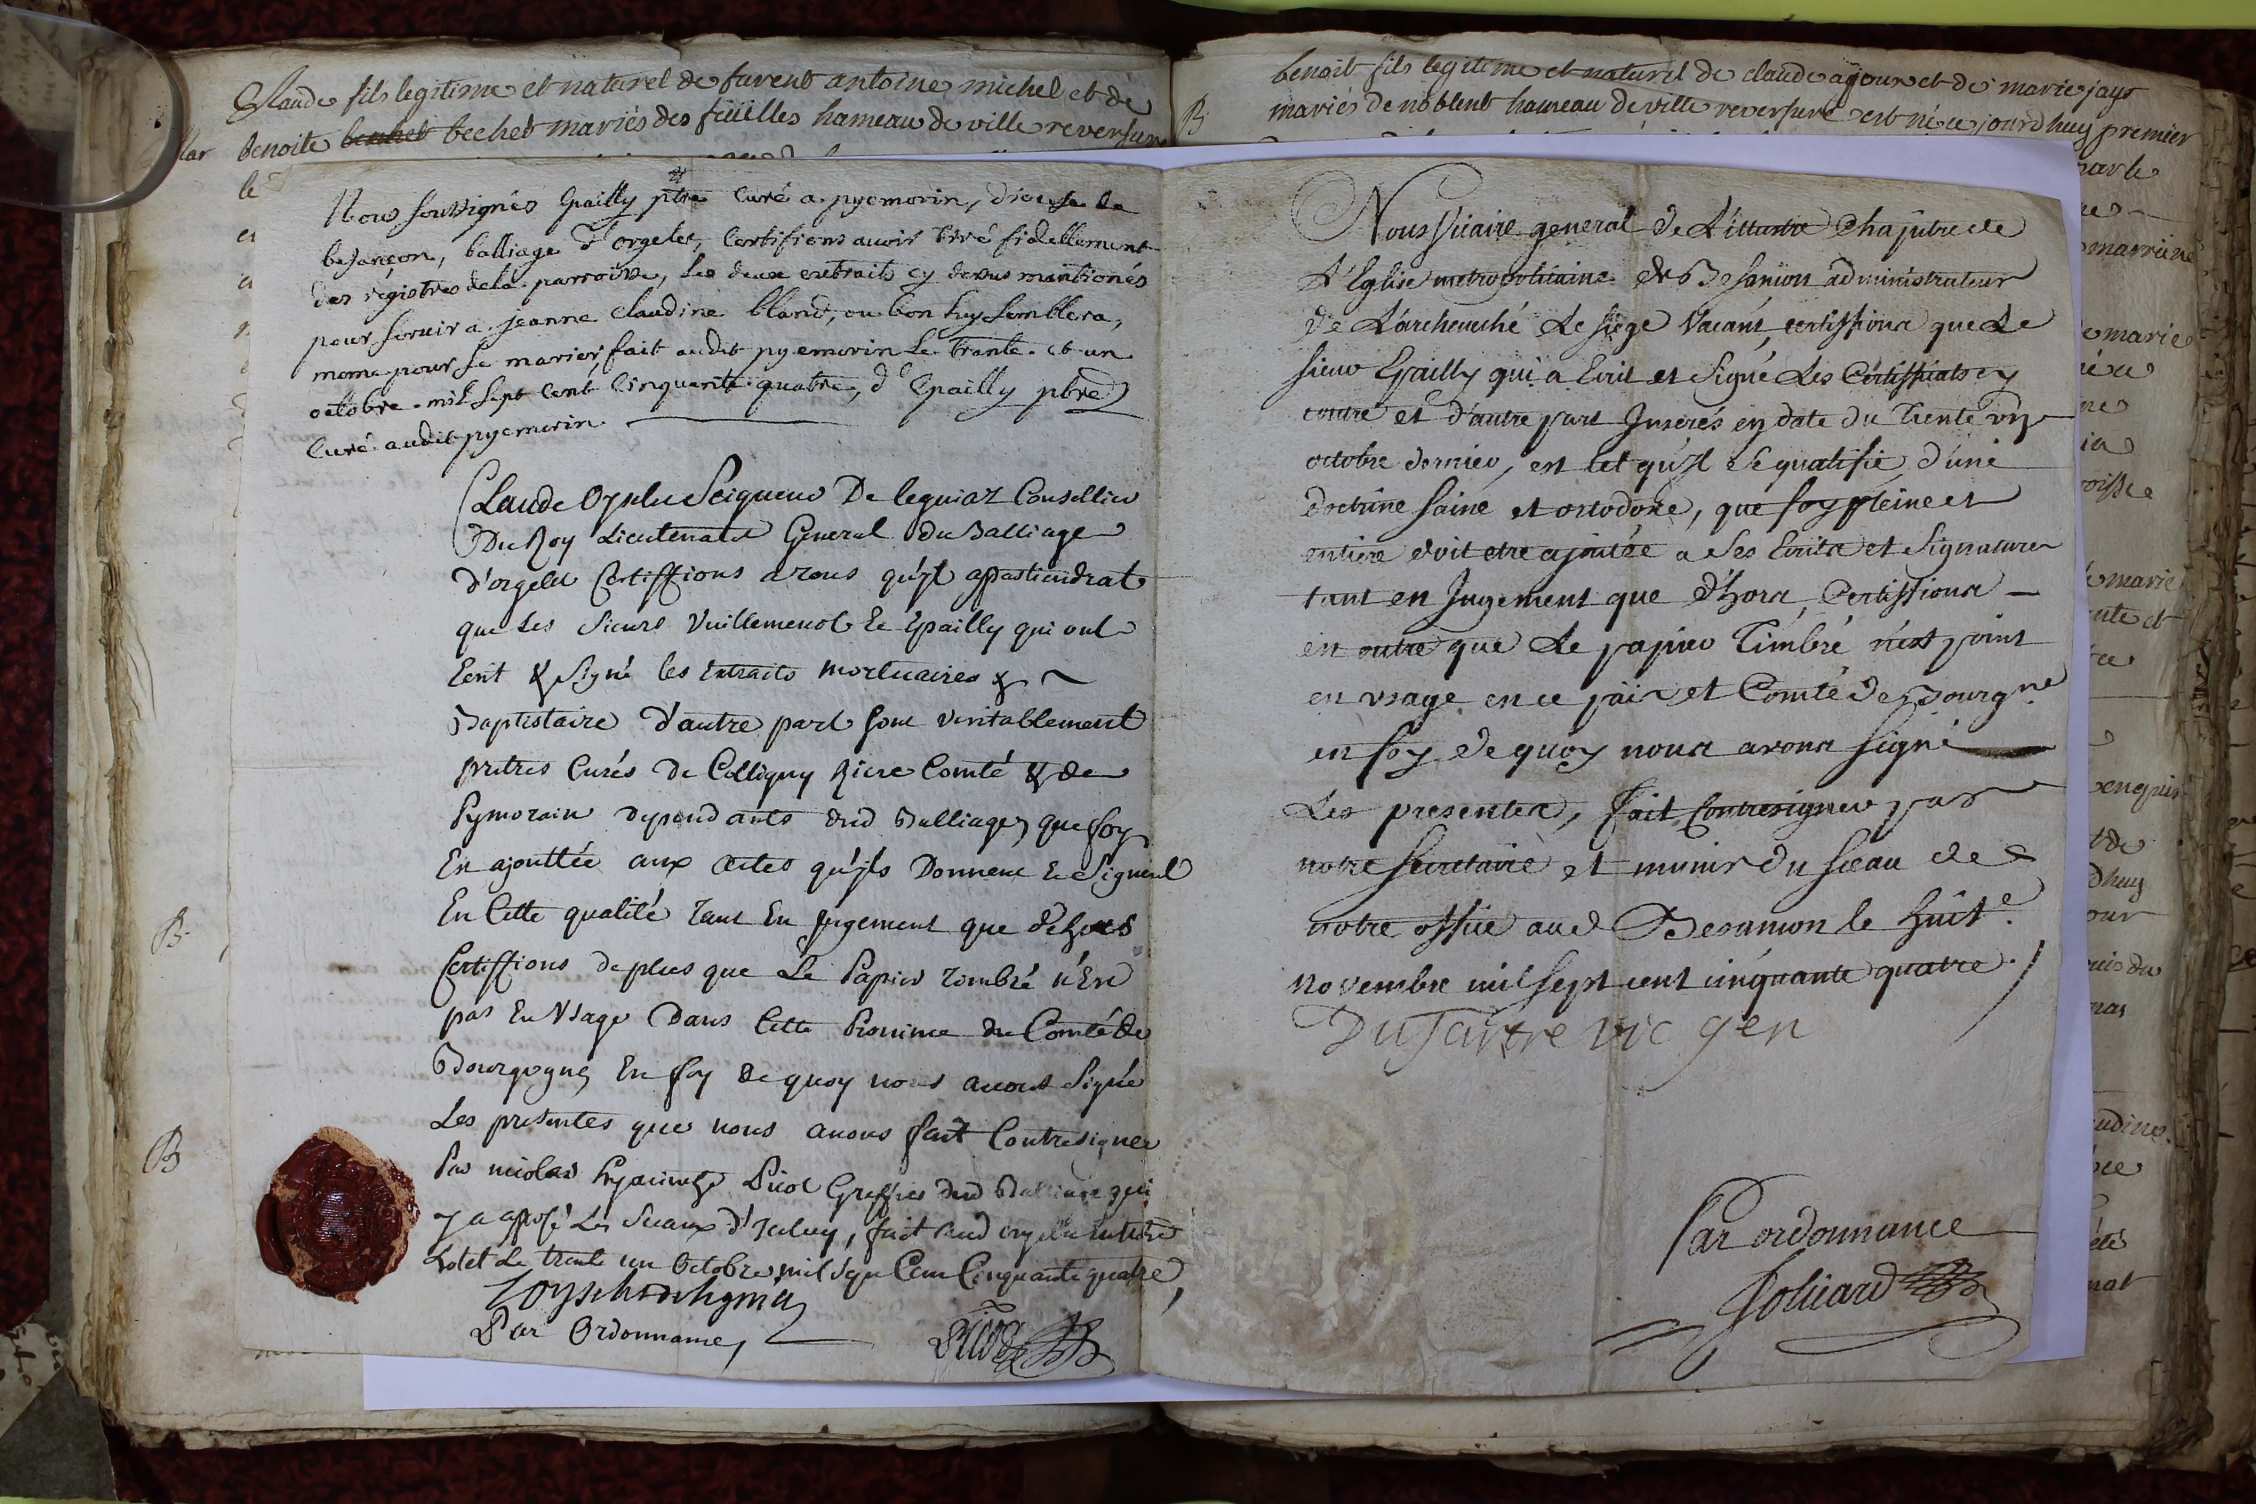 Claude fils legitime et naturel de furent antoine michel et de
benoite bechet mariés des feüilles hameau de ville reversure
Nous soussignés Epailly ptre curé a pyemorin, diocese de
besançon, balliage d'orgelet, certifions avoir tiré fidellement
des régistres de la parroisse, les deux extraits cy dessus mantionés
pour servir a jeanne claudine bland, ou bon luy semblera,
meme pour se marier, fait audit pyemorin le trante et un
octobre mil sept cent cinquante quatre, d'Epailly ptre
curé audit pyemorin
Claude Oyselet Seigneur De legniaz Conseillier
Du Roy Lieutenant General du Balliage
d'orgelet Certiffions a tous qu'yl appartiendrat
que les sieurs Vuillemenot Et Epailly qui ont
Ecrit & signé les Extraits mortuaires &
Baptistaire d'autre part sont veritablement
prêtres Curés De Colligny riere Comté & de
Pymorain dependants dud Balliage, que foy
Est ajouttée aux actes qu'yls Donnent Et Signent
En Cette qualité tant En jugement que dehors
Certiffions de plus que Le Papier timbré n'Est
pas En Usage Dans Cette Province du Comté de
Bourgogne, En foy de quoy nous avons signé
Les presentes que nous avons fait Contresigner
Par nicolas hyacinthe Picot Greffier dud Balliage qui
y a apposé Les Sceaux d'Iceluy, fait aud orgelet En notre
hotel Le trente un Octobre mil sept Cent Cinquante quatre,
Par Ordonnance,
Picot
benoit fils legitime et naturel de claude ajoux et de marie jays
mariés de noblent hameau de ville reversure est né cejourdhuy premier
Nous Vicaire general de L'illustre Chapitre de
L'Eglise metropolitaine de Besançon administrateur
de L'archeveché Le siege Vacant, certiffions que Le
sieur Epailly qui a Ecrit et Signé Les Certifficats cy
contre et d'autre part Inserés en date du trente un
octobre dernier, est tel qu'il se qualifie, d'une
doctrine saine et ortodoxe, que foy pleine et
entiere doit etre ajoutée a ses Ecrits et Signatures
tant en Jugement que d'hors, Certiffions
en outre que Le papier Timbré n'est point
en usage en ce païs et Comté de Bourgne
en foy de quoy nous avons signé
Les presentes, fait Contresigner par
notre secretaire et munir du sceau de
notre office aud Besançon le huite
novembre mil sept cent cinquante quatre.
DuTartre vic gen
Par ordonnance
Jolliard